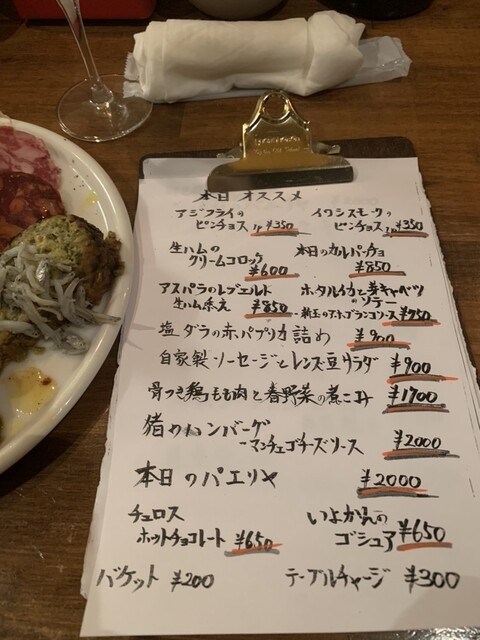 本日オススメ
アジフライの
ピンチョス 1p ¥350
イワシスモークの
ピンチョス 1p ¥350
生ハムの
クリームコロッケ
¥600
本日のカルパッチョ
¥850
アスパラのレブエルト
生ハム添え ¥850
ホタルイカと芽キャベツ
のソテー
-新玉のアホブランコソース ¥950
塩ダラの赤パプリカ詰め ¥900
自家製ソーセージとレンズ豆サラダ ¥900
骨つき鶏もも肉と春野菜の煮こみ ¥1700
猪のハンバーグ
-マンチェゴチーズソース ¥2000
本日のパエリヤ ¥2000
チュロス
ホットチョコレート ¥650
いよかんの
ゴシュア ¥650
バケット ¥200
テーブルチャージ ¥300